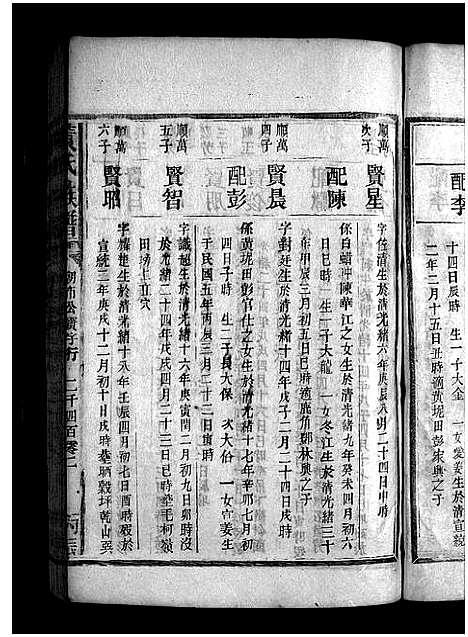 配李
十四日辰時 生一子大金 一女愛姜生於清宣統
二年三月十五日丑時適黃坭田彭家興之子
次子
賢星
字佐清生於清光緒六年庚辰八月二十四日申時
配陳
係白蜡冲陳華江之女生於清光緒九年癸未四月初六
日巳時 生一子大龍 一女冬江生於清光緒三十
年甲辰三月初五日巳時適鹿角鄧林興之子
順萬
四子
賢晨
字對廷生於清光緒十四年戊子二月二十四日戌時
配彭
係黃坭田彭官仕之女生於清光緒十七年辛卯七月初
四日子時 生二子長大保 次大俗 一女宣姜生
于民國五年丙辰三月二十三日寅時
順萬
五子
賢智
字識超生於清光緒十六年庚寅閏二月初九日卯時沒
於光緒二十四年戊戌四月二十三日巳時塟毛柯嶺
田塝上豆穴
順萬
六子
賢聰
字楚生於清光緒十八年壬辰四月初七日酉時歿於
宣統二年庚戌十二月初十日戌時塟晒穀坪乾山巽
氏族譜